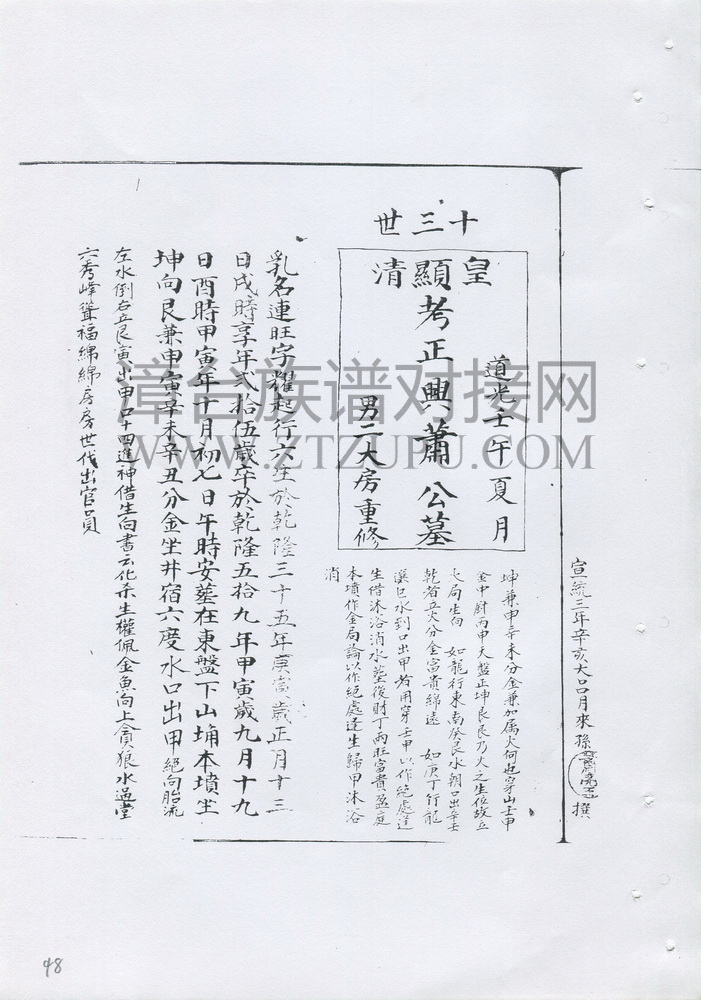 十三世
皇清
道光壬午夏月
顯考正興蕭公墓
男二大房重修
宣統三年辛亥六月來孫撰
坤兼申辛未分金兼加属火何也穿山壬申
金中尉丙申天盤正坤艮艮乃火之生位故立
火局生向 如龍行東南癸艮水朝口出辛壬
乾者立火分金富貴綿遠 如庚丁行龍
巽巳水到口出甲者用穿壬甲以作絶處逢
生借沐浴消水塟後財丁兩旺富貴盈庭
本墳作金局論以作絶處逢生歸甲沐浴
消
乳名連旺字耀起行六生於乾隆三十五年庚寅歲正月十三
日戌時享年弍拾伍歲卒於乾隆五拾九年甲寅歲九月十九
日酉時甲寅年十月初七日午時安塟在東盤下山埔本墳坐
坤向艮兼申寅辛未辛丑分金坐井宿六度水口出甲絕向胎流
左水倒右立艮寅出甲口十四進神借生向書云化杀生權佩金魚向上貪狼水過堂
六秀峰聳福綿綿房房世代出官員
漳台族谱对接网
WWW.ZTZUPU.COM
48